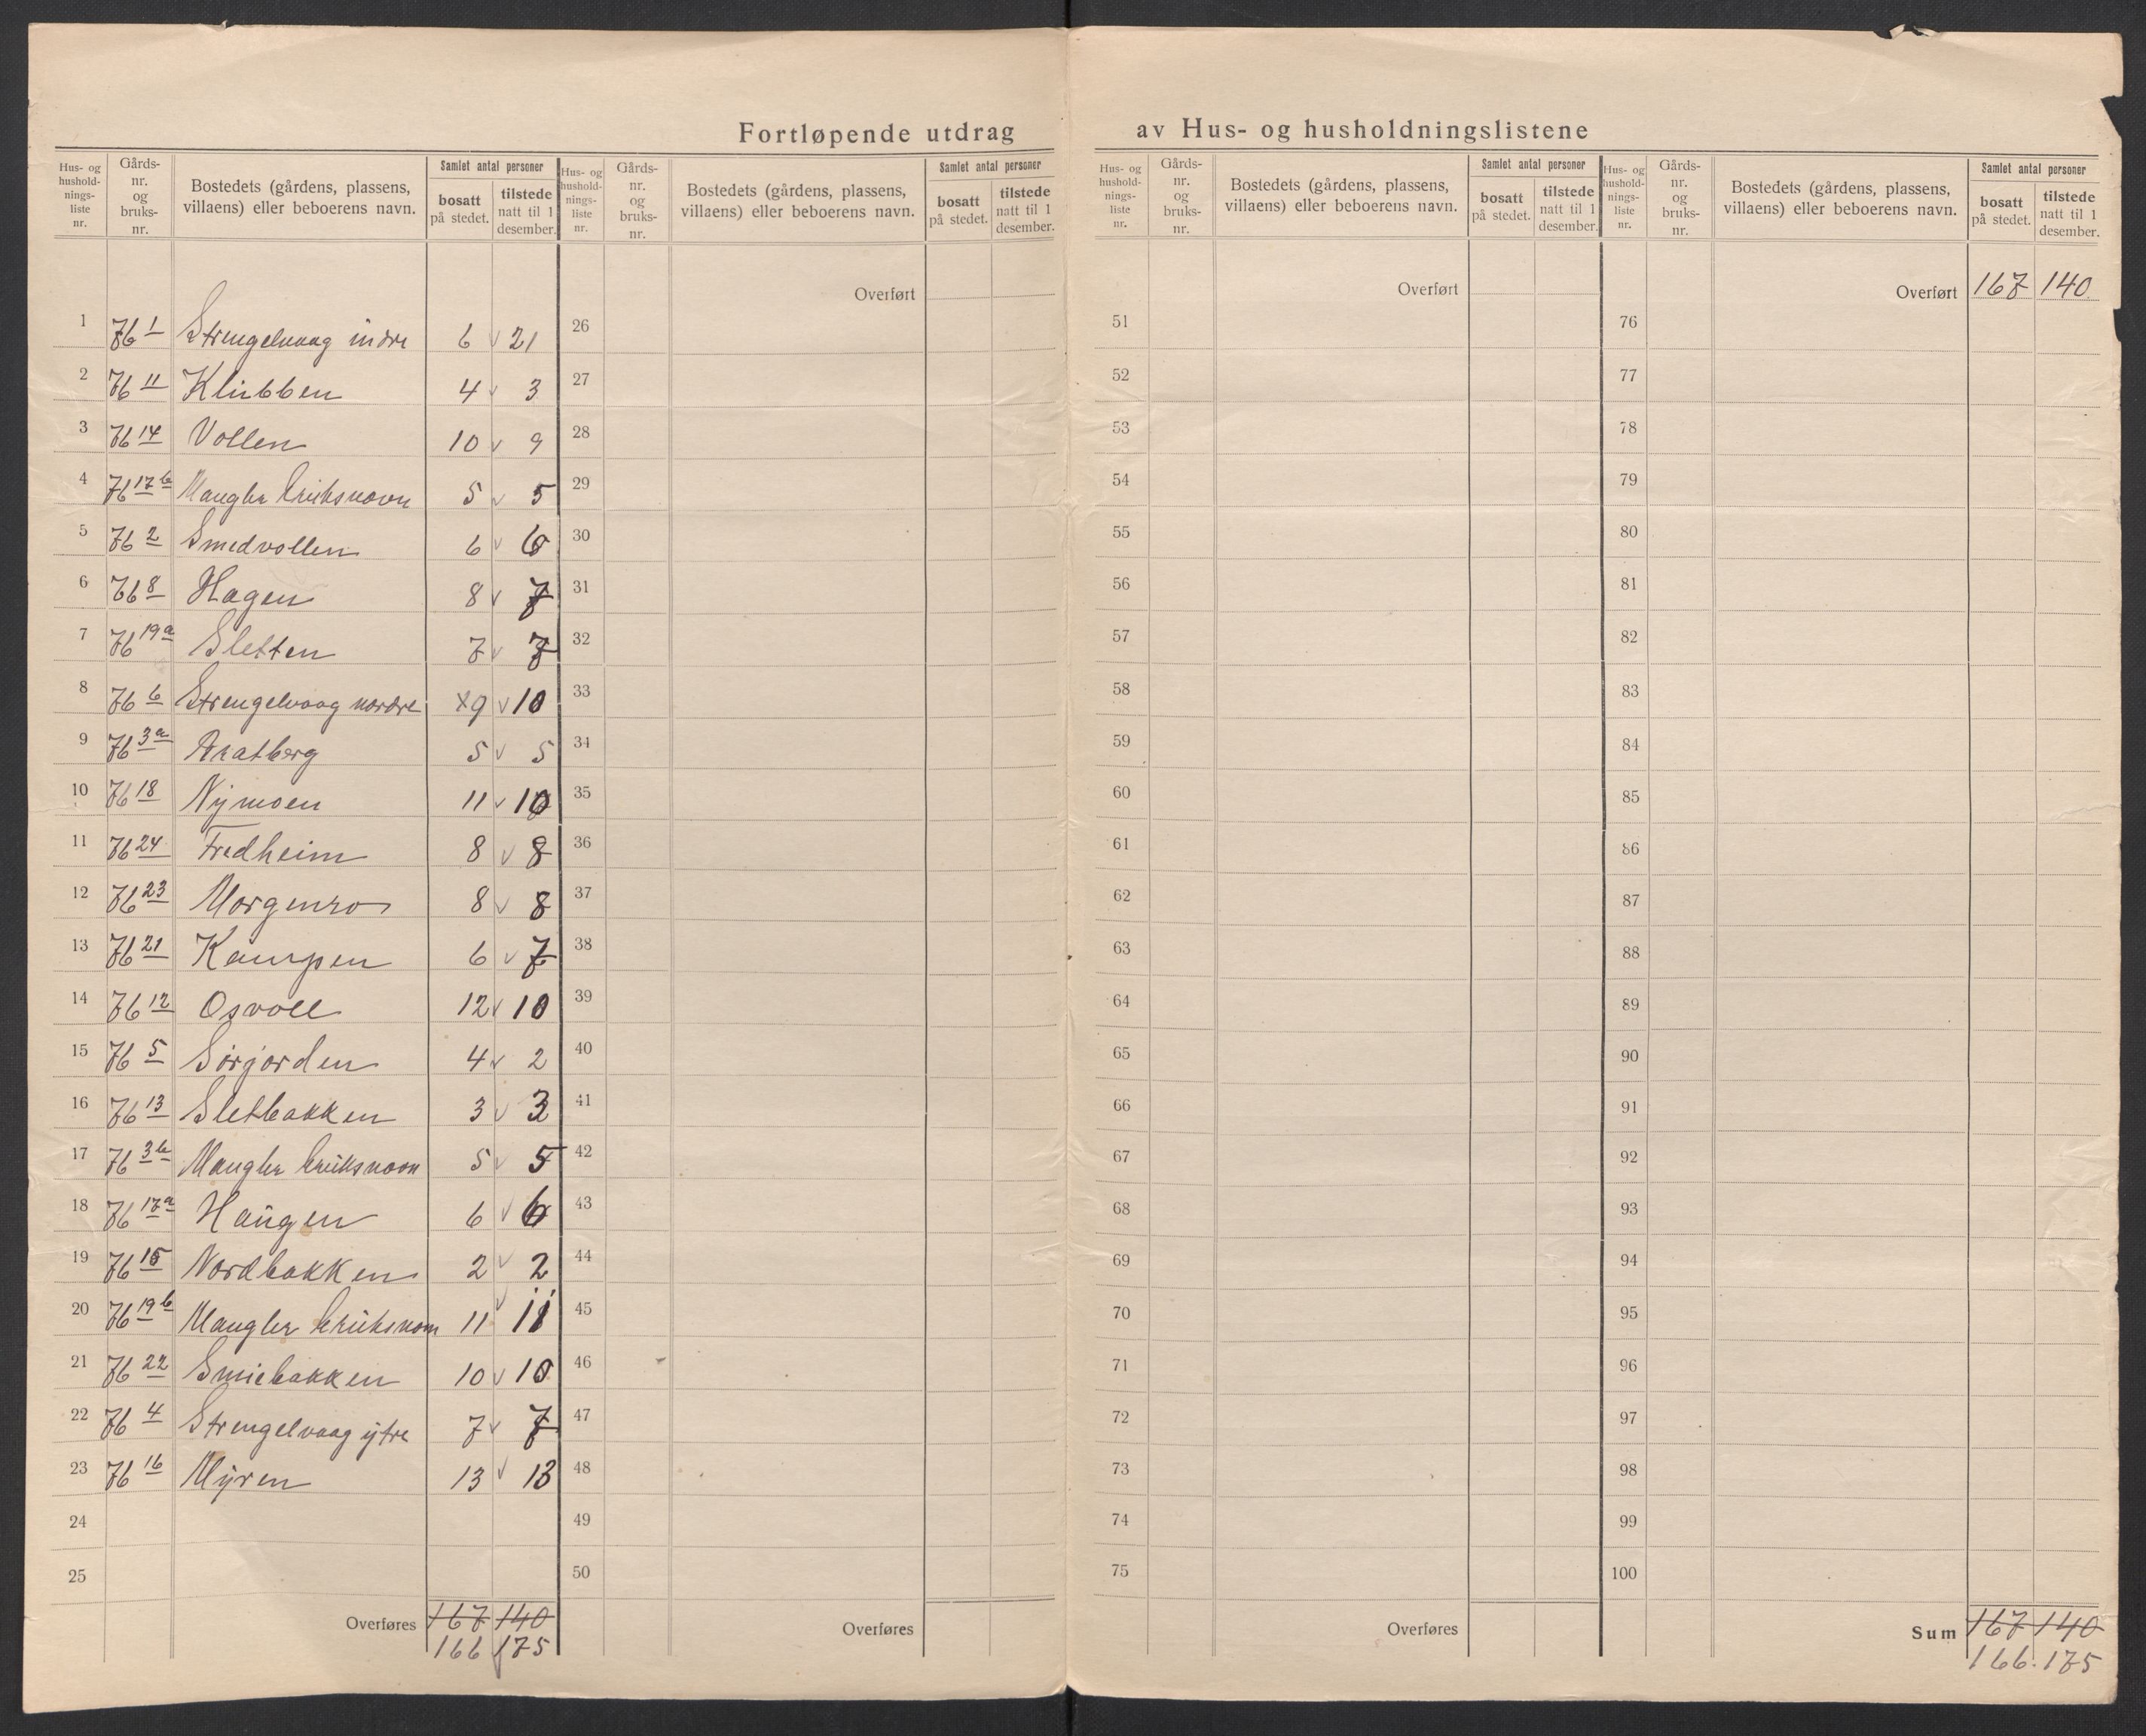 Fortløpende utdrag av Hus- og husholdningslistene
Hus- og hushold-nings-liste nr. | Gårds-nr. og bruks-nr. | Bostedets (gårdens, plassens, villaens) eller beboerens navn. | Samlet antal personer | bosatt på stedet. | tilstede natt til 1 desember.
1 76 1 Strengelvaag indre 6 v 21
2 76 11 Klubben 4 v 3
3 76 14 Vollen 10 v 9
4 76 17b Mangler bruksnavn 5 v 5
5 76 2 Smedvollen 6 v 6
6 76 8 Hagen 8 v 7
7 76 19a Sletten 7 v 7
8 76 6 Strengelvaag nordre x9 v 10
9 76 3a 5 v 5
10 76 18 Nymoen 11 v 10
11 76 24 Fredheim 8 v 8
12 76 23 Morgenro 8 v 8
13 76 21 Kampen 6 v 7
14 76 12 Osvoll 12 v 10
15 76 5 Sørjorden 4 v 2
16 76 13 Sletbakken 3 v 3
17 76 3b Mangler bruksnavn 5 v 5
18 76 17a Haugen 6 v 6
19 76 15 Nordbakken 2 v 2
20 76 19b Mangler bruksnavn 11 v 11
21 76 22 Smiebakken 10 v 10
22 76 4 Strengelvaag ytre 7 v 7
23 76 16 Myren 13 v 13
24
25
Overføres 167 140
166 175
Hus- og hushold-nings-liste nr. | Gårds-nr. og bruks-nr. | Bostedets (gårdens, plassens, villaens) eller beboerens navn. | Samlet antal personer | bosatt på stedet. | tilstede natt til 1 desember.
Overført
26
27
28
29
30
31
32
33
34
35
36
37
38
39
40
41
42
43
44
45
46
47
48
49
50
Overføres
Hus- og hushold-nings-liste nr. | Gårds-nr. og bruks-nr. | Bostedets (gårdens, plassens, villaens) eller beboerens navn. | Samlet antal personer | bosatt på stedet. | tilstede natt til 1 desember.
Overført
51
52
53
54
55
56
57
58
59
60
61
62
63
64
65
66
67
68
69
70
71
72
73
74
75
Overføres
Hus- og hushold-nings-liste nr. | Gårds-nr. og bruks-nr. | Bostedets (gårdens, plassens, villaens) eller beboerens navn. | Samlet antal personer | bosatt på stedet. | tilstede natt til 1 desember.
Overført 167 140
76
77
78
79
80
81
82
83
84
85
86
87
88
89
90
91
92
93
94
95
96
97
98
99
100
Sum 167 140
166. 175